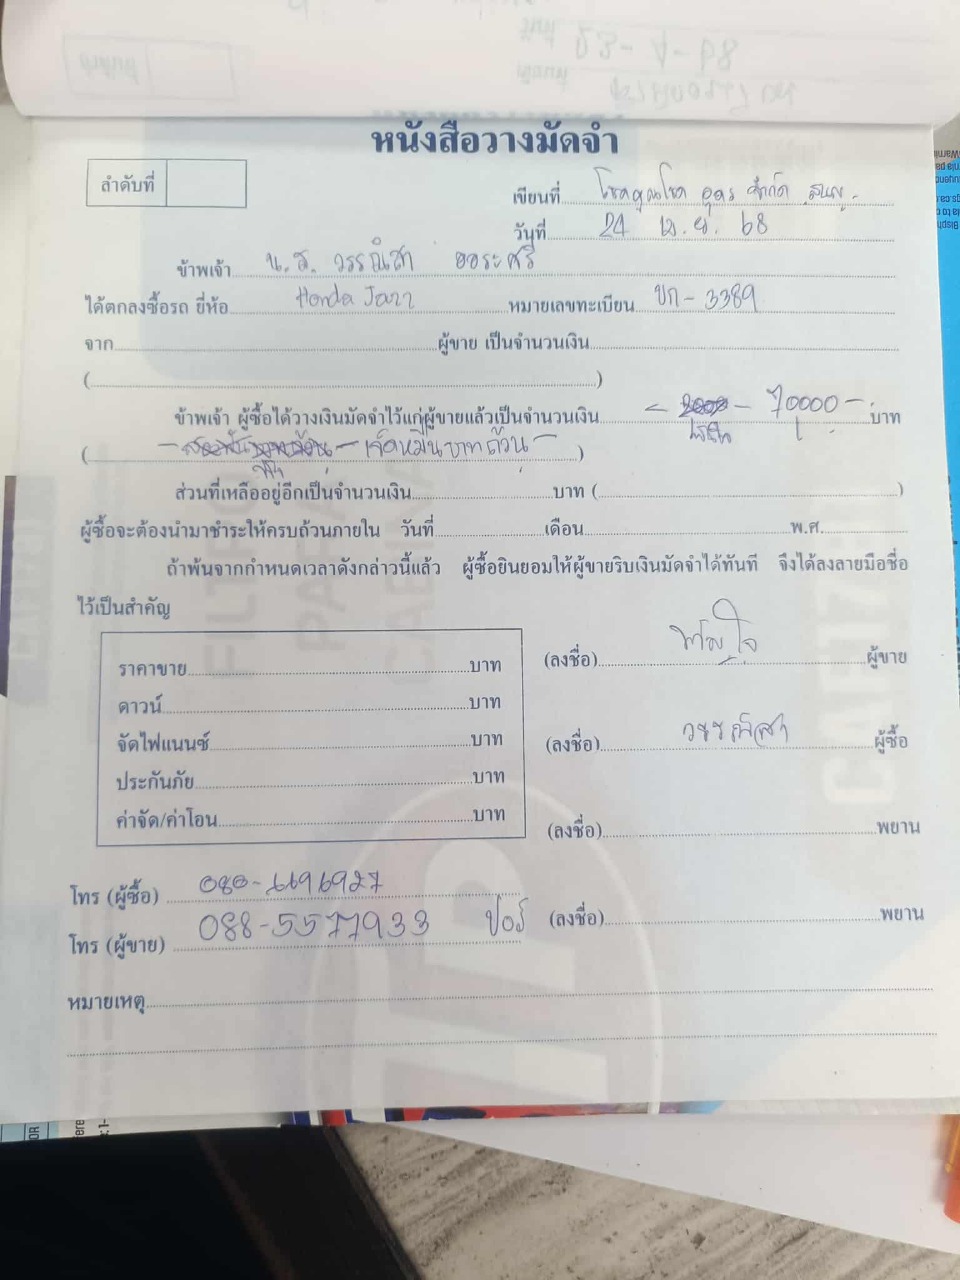 หนังสือวางมัดจำ
ลำดับที่
เขียนที่ โชคคูณโชค อุดร จำกัด
วันที่ 24 เม.ย. 68
ข้าพเจ้า น.ส. วรรณิสา
ได้ตกลงซื้อรถ ยี่ห้อ Honda Jazz หมายเลขทะเบียน ขก-3389
จาก ผู้ขาย เป็นจำนวนเงิน
( )
ข้าพเจ้า ผู้ซื้อได้วางเงินมัดจำไว้แก่ผู้ขายแล้วเป็นจำนวนเงิน - 70000 - บาท
( - เจ็ดหมื่นบาทถ้วน - )
ส่วนที่เหลืออยู่อีกเป็นจำนวนเงิน บาท ( )
ผู้ซื้อจะต้องนำมาชำระให้ครบถ้วนภายใน วันที่ เดือน พ.ศ.
ถ้าพ้นจากกำหนดเวลาดังกล่าวนี้แล้ว ผู้ซื้อยินยอมให้ผู้ขายริบเงินมัดจำได้ทันที จึงได้ลงลายมือชื่อ
ไว้เป็นสำคัญ
ราคาขาย บาท
ดาวน์ บาท
จัดไฟแนนซ์ บาท
ประกันภัย บาท
ค่าจัด/ค่าโอน บาท
(ลงชื่อ) ผู้ขาย
(ลงชื่อ) วรรณิสา ผู้ซื้อ
(ลงชื่อ) พยาน
(ลงชื่อ) พยาน
โทร (ผู้ซื้อ) 080-6696927
โทร (ผู้ขาย) 088-5577933 ปอร์
หมายเหตุ